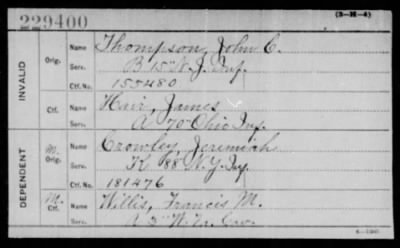 229400
(3-H-4)
INVALID
Orig.
Name Thompson, John C.
Serv. B 15" N. J. Inf.
Ctf. No. 155480
Ctf.
Name Hair, James
Serv. A 70 Ohio Inf.
DEPENDENT
M. Orig.
Name Crowley, Jeremiah
Serv. K 88 N.Y. Inf.
Ctf. No. 181476
M. Ctf.
Name Willis, Francis M.
Serv. A 3" W. Va. Cav.